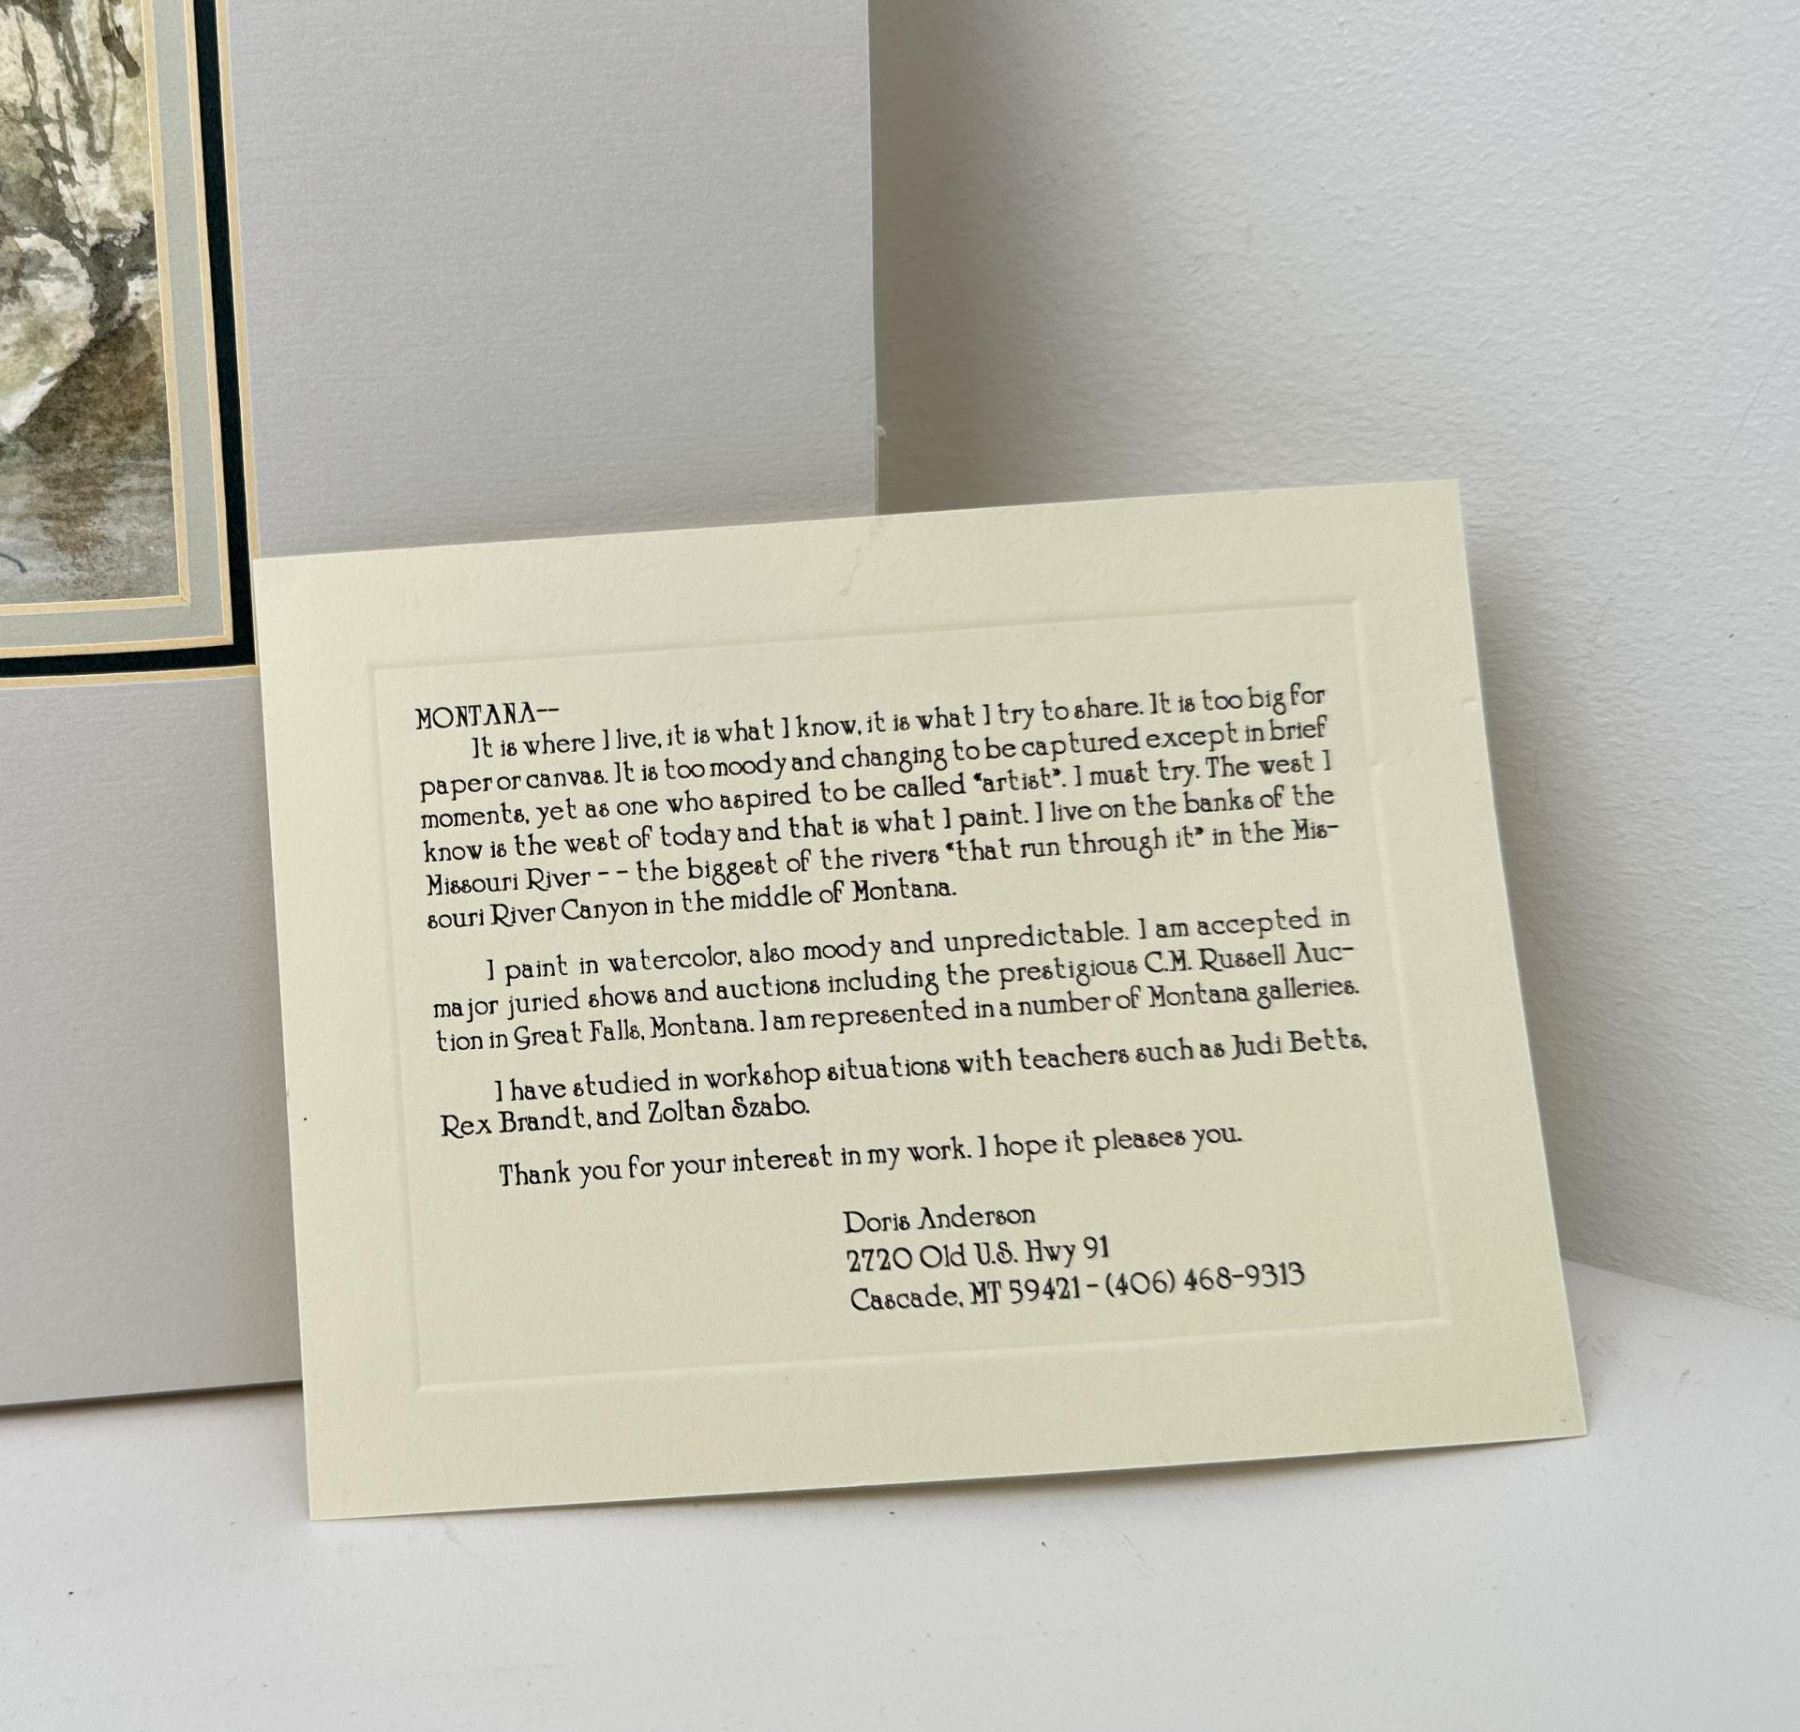 MONTANA--
It is where I live, it is what I know, it is what I try to share. It is too big for
paper or canvas. It is too moody and changing to be captured except in brief
moments, yet as one who aspired to be called "artist". I must try. The west I
know is the west of today and that is what I paint. I live on the banks of the
Missouri River -- the biggest of the rivers "that run through it" in the Mis-
souri River Canyon in the middle of Montana.
I paint in watercolor, also moody and unpredictable. I am accepted in
major juried shows and auctions including the prestigious C.M. Russell Auc-
tion in Great Falls, Montana. I am represented in a number of Montana galleries.
I have studied in workshop situations with teachers such as Judi Betts,
Rex Brandt, and Zoltan Szabo.
Thank you for your interest in my work. I hope it pleases you.
Doris Anderson
2720 Old U.S. Hwy 91
Cascade, MT 59421 - (406) 468-9313